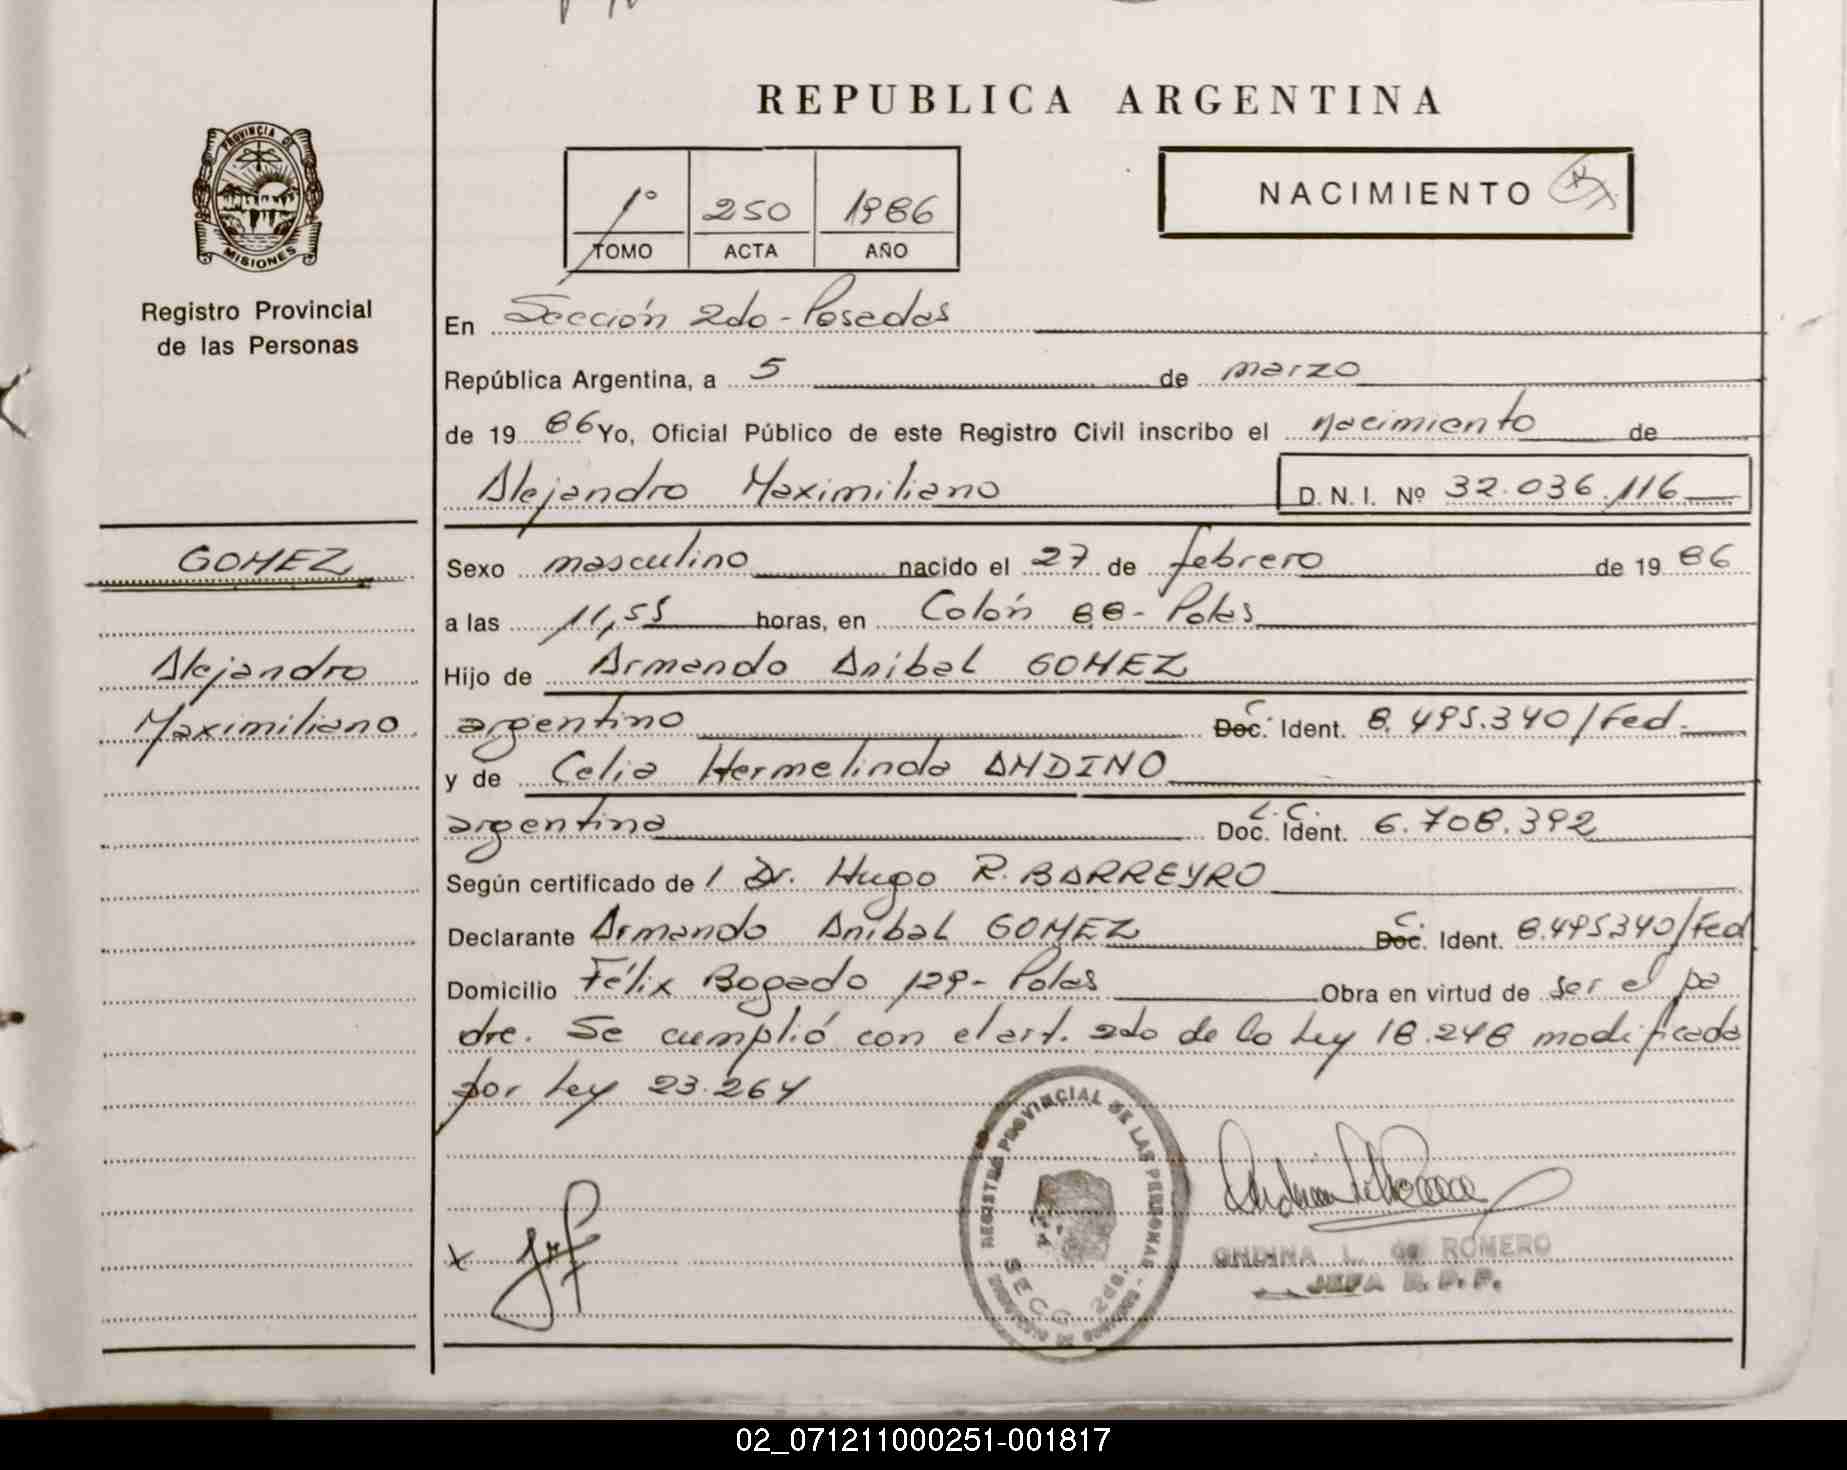 REPUBLICA ARGENTINA
PROVINCIA DE
MISIONES
Registro Provincial
de las Personas
1º 250 1986
TOMO ACTA AÑO
NACIMIENTO
En Sección 2da - Posadas
República Argentina, a 5 de marzo
de 19 86 Yo, Oficial Público de este Registro Civil inscribo el nacimiento de
Alejandro Maximiliano D.N.I. Nº 32.036.116
GOMEZ
Alejandro
Maximiliano
Sexo masculino nacido el 27 de febrero de 19 86
a las 11,55 horas, en Colón 88 - Pdas
Hijo de Armando Anibal GOMEZ
argentino Doc. C. Ident. 8.495.340/Fed.
y de Celia Hermelinda ANDINO
argentina L.C. Doc. Ident. 6.708.392
Según certificado de / Dr. Hugo R. BARREYRO
Declarante Armando Anibal GOMEZ Doc. C. Ident. 8.495340/Fed
Domicilio Félix Bogado 129 - Pdas Obra en virtud de ser el pa
dre. Se cumplió con el art. 2do de la Ley 18.248 modificada
por Ley 23.264
REGISTRO PROVINCIAL DE LAS PERSONAS
SECC. 2da.
L. de ROMERO
JEFA R. P. P.
02_071211000251-001817